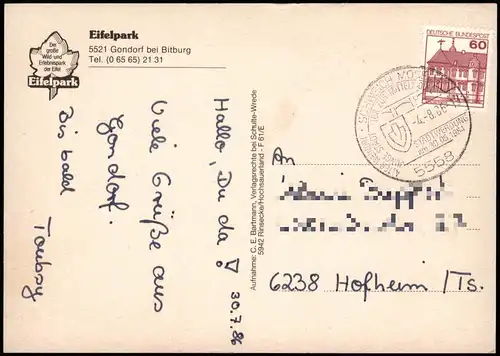 Eifelpark
5521 Gondorf bei Bitburg
Tel. (0 65 65) 21 31
Die
große
Wild- und
Erlebnispark
der Eifel
Eifelpark
DEUTSCHE BUNDESPOST
60
-4.-8.86
5568
Hallo, Du da!
30.7.86
Viele Grüße aus
Gondorf.
Bis bald
Aufnahme: C. E. Bartmann, Verlagsrechte bei Schulte-Wrede
5942 Rinsecke/Hochsauerland - F 61/E
An
6238 Hofheim/Ts.